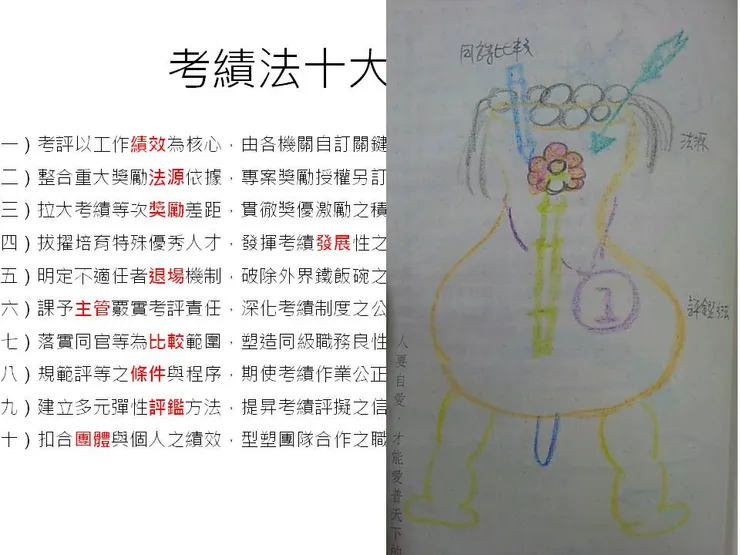 考績法十大
一）考評以工作績效為核心，由各機關自訂關鍵
二）整合重大獎勵法源依據，專案獎勵授權另訂
三）拉大考績等次獎勵差距，貫徹獎優激勵之積
四）拔擢培育特殊優秀人才，發揮考績發展性之
五）明定不適任者退場機制，破除外界鐵飯碗之
六）課予主管覈實考評責任，深化考績制度之公
七）落實同官等為比較範圍，塑造同級職務良性
八）規範評等之條件與程序，期使考績作業公正
九）建立多元彈性評鑑方法，提昇考績評擬之信
十）扣合團體與個人之績效，型塑團隊合作之職
比較
法源
1
評鑑方法
人要自愛，才能愛普天下的